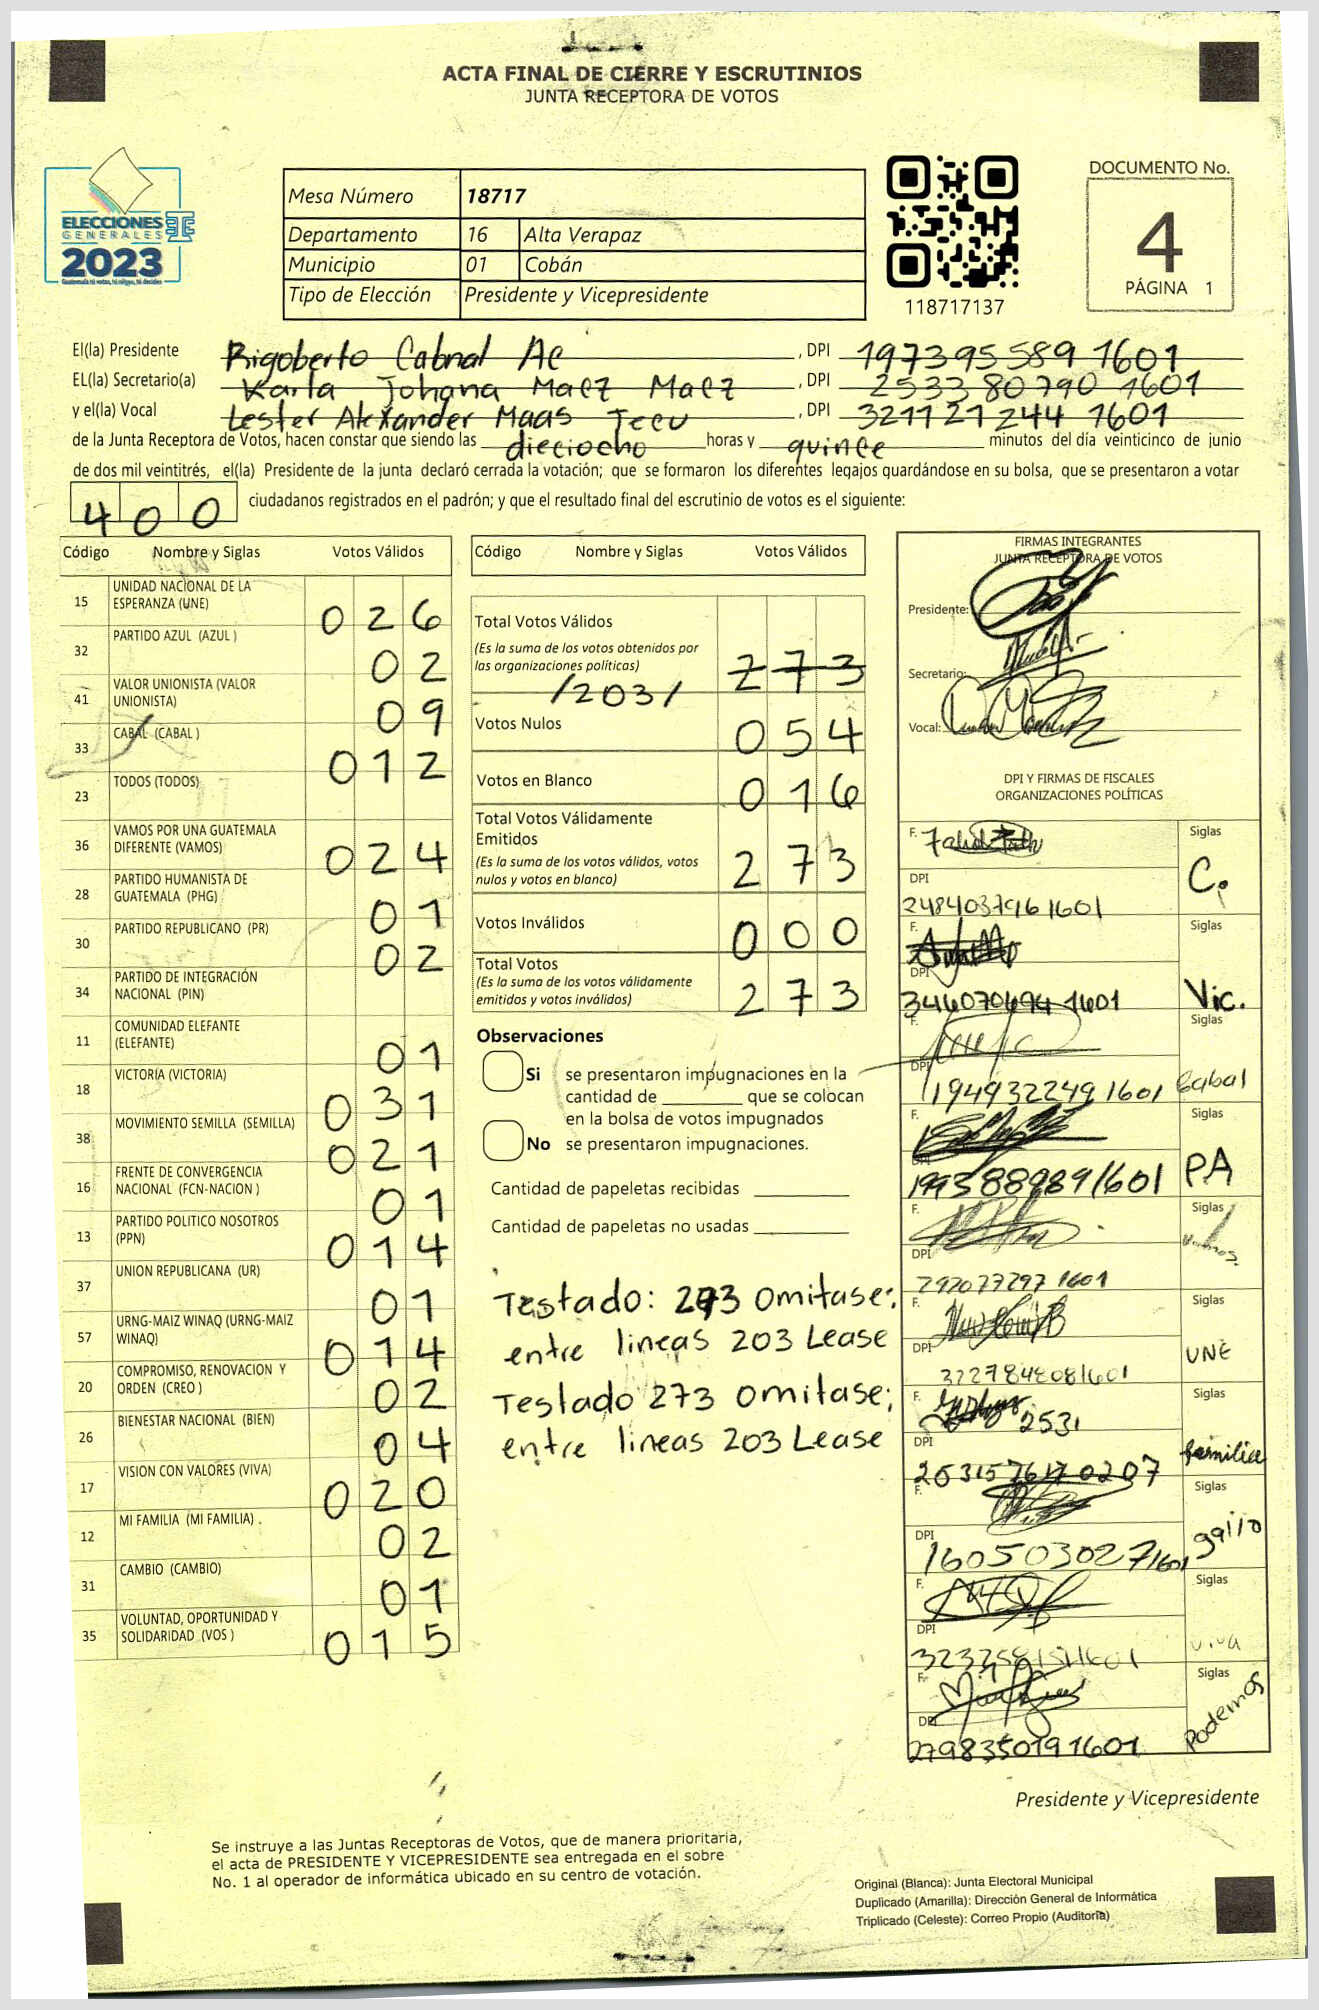 ACTA FINAL DE CIERRE Y ESCRUTINIOS
JUNTA RECEPTORA DE VOTOS
ELECCIONES
GENERALES
2023
Mesa Número 18717
Departamento 16 Alta Verapaz
Municipio 01 Cobán
Tipo de Elección Presidente y Vicepresidente
118717137
DOCUMENTO No.
4
PÁGINA 1
El(la) Presidente Rigoberto Cabnal Ac , DPI 1973955891601
EL(la) Secretario(a) Karla Johana Maez Maez , DPI 2533807901601
y el(la) Vocal Lester Alexander Maas Tecu , DPI 3211212441601
de la Junta Receptora de Votos, hacen constar que siendo las dieciocho horas y quince minutos del día veinticinco de junio
de dos mil veintitrés, el(la) Presidente de la junta declaró cerrada la votación; que se formaron los diferentes legajos guardándose en su bolsa, que se presentaron a votar
400 ciudadanos registrados en el padrón; y que el resultado final del escrutinio de votos es el siguiente:
Código Nombre y Siglas Votos Válidos
15 UNIDAD NACIONAL DE LA ESPERANZA (UNE) 026
32 PARTIDO AZUL (AZUL ) 02
41 VALOR UNIONISTA (VALOR UNIONISTA) 09
33 CABAL (CABAL ) 012
23 TODOS (TODOS)
36 VAMOS POR UNA GUATEMALA DIFERENTE (VAMOS) 024
28 PARTIDO HUMANISTA DE GUATEMALA (PHG) 01
30 PARTIDO REPUBLICANO (PR) 02
34 PARTIDO DE INTEGRACIÓN NACIONAL (PIN)
11 COMUNIDAD ELEFANTE (ELEFANTE) 01
18 VICTORIA (VICTORIA) 031
38 MOVIMIENTO SEMILLA (SEMILLA) 021
16 FRENTE DE CONVERGENCIA NACIONAL (FCN-NACION ) 01
13 PARTIDO POLITICO NOSOTROS (PPN) 014
37 UNION REPUBLICANA (UR) 01
57 URNG-MAIZ WINAQ (URNG-MAIZ WINAQ) 014
20 COMPROMISO, RENOVACION Y ORDEN (CREO ) 02
26 BIENESTAR NACIONAL (BIEN) 04
17 VISION CON VALORES (VIVA) 020
12 MI FAMILIA (MI FAMILIA) 02
31 CAMBIO (CAMBIO) 01
35 VOLUNTAD, OPORTUNIDAD Y SOLIDARIDAD (VOS ) 015
Código Nombre y Siglas Votos Válidos
Total Votos Válidos
(Es la suma de los votos obtenidos por
las organizaciones políticas) 273
/203/
Votos Nulos 054
Votos en Blanco 016
Total Votos Válidamente
Emitidos
(Es la suma de los votos válidos, votos
nulos y votos en blanco) 273
Votos Inválidos 000
Total Votos
(Es la suma de los votos válidamente
emitidos y votos inválidos) 273
Observaciones
Si se presentaron impugnaciones en la
cantidad de ________ que se colocan
en la bolsa de votos impugnados
No se presentaron impugnaciones.
Cantidad de papeletas recibidas
Cantidad de papeletas no usadas
Testado: 273 omitase;
entre lineas 203 Lease
Testado 273 omitase;
entre lineas 203 Lease
FIRMAS INTEGRANTES
JUNTA RECEPTORA DE VOTOS
Presidente:
Secretario:
Vocal:
DPI Y FIRMAS DE FISCALES
ORGANIZACIONES POLÍTICAS
F. Siglas
DPI C.
2484037961601
F. Siglas
DPI Vic.
3460706941601
F. Siglas
DPI
1949322491601 Cabal
F. Siglas
DPI PA
1993889891601
F. Siglas
DPI Vamos.
2920772971601
F. Siglas
DPI UNE
3227848081601
F. 2531 Siglas
DPI familia
2531576170207
F. Siglas
DPI gallo
1605030271601
F. Siglas
DPI viva
F. Siglas
DPI Podemos
2798350191601
Presidente y Vicepresidente
Se instruye a las Juntas Receptoras de Votos, que de manera prioritaria,
el acta de PRESIDENTE Y VICEPRESIDENTE sea entregada en el sobre
No. 1 al operador de informática ubicado en su centro de votación.
Original (Blanca): Junta Electoral Municipal
Duplicado (Amarilla): Dirección General de Informática
Triplicado (Celeste): Correo Propio (Auditoría)